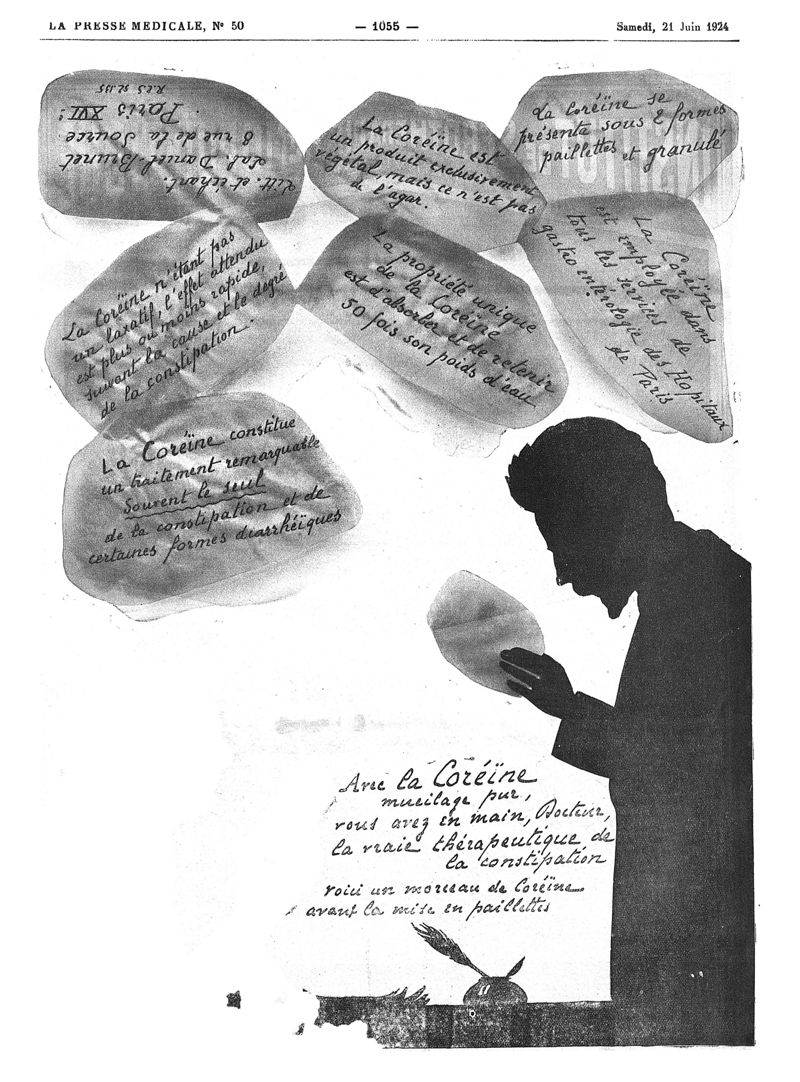 LA PRESSE MEDICALE, N° 50
— 1055 —
Samedi, 21 Juin 1924
Litt. et échant.
Lab. Daniel-Brunet
8 rue de la Source
Paris XVIe
R.C.S
La Coréïne est
un produit exclusivement
végétal, mais ce n'est pas
de l'agar.
La Coréïne se
présente sous 2 formes
paillettes et granulé
La Coréïne n'étant pas
un laxatif, l'effet attendu
est plus ou moins rapide,
suivant la cause et le degré
de la constipation.
La propriété unique
de la Coréïne
est d'absorber et de retenir
50 fois son poids d'eau
La Coréïne
est employée dans
tous les services de
gastro entérologie des Hopitaux
de Paris
La Coréïne constitue
un traitement remarquable
Souvent le seul
de la constipation et de
certaines formes diarrhéïques
Avec la Coréïne
mucilage pur,
vous avez en main, Docteur,
la vraie thérapeutique de
la constipation
voici un morceau de Coréïne
avant la mise en paillettes